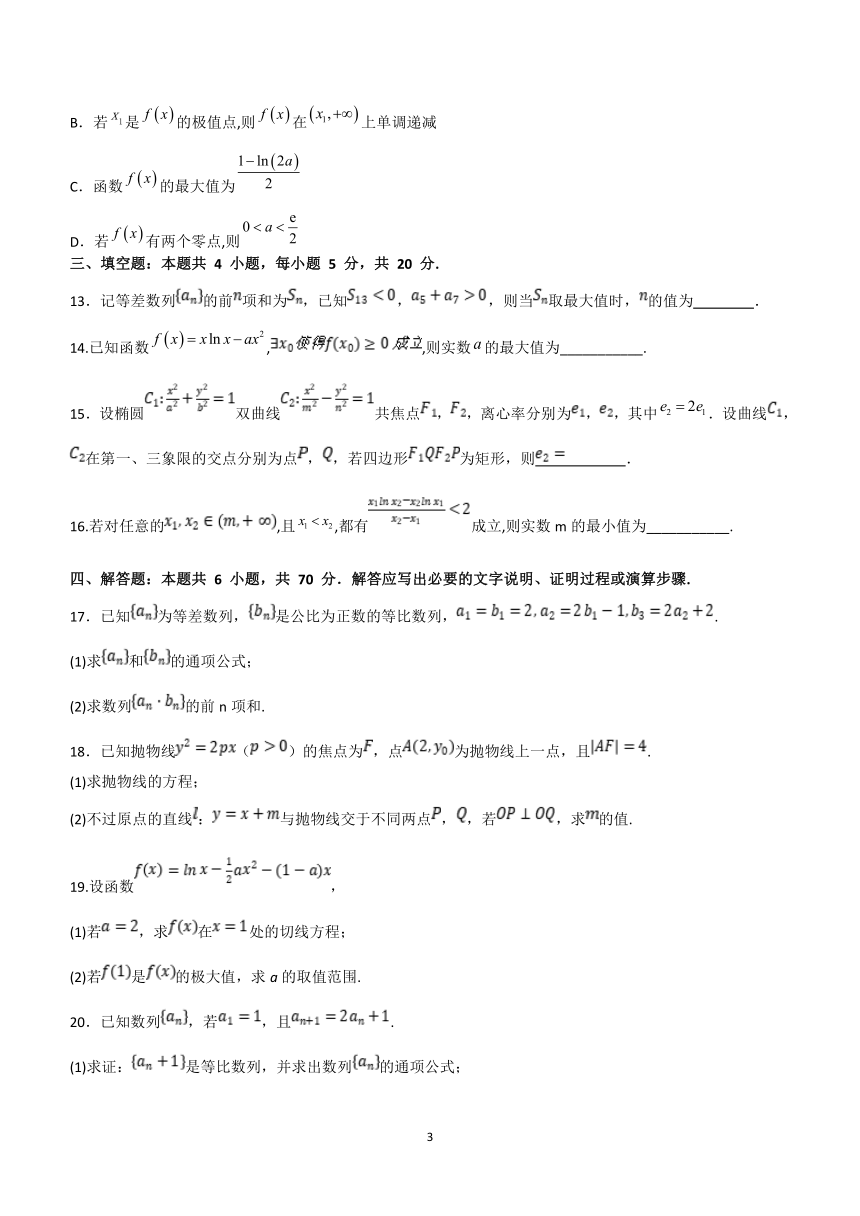 B．若 x₁ 是 f(x) 的极值点,则 f(x) 在 (x₁,+∞) 上单调递减
C．函数 f(x) 的最大值为 (1−ln(2a))/2
D．若 f(x) 有两个零点,则 0<a<e/2
三、填空题：本题共 4 小题，每小题 5 分，共 20 分．
13．记等差数列{aₙ}的前n项和为Sₙ，已知S₁₃<0，a₅+a₇>0，则当Sₙ取最大值时，n的值为________．
14.已知函数 f(x)=xlnx−ax²,∃x₀使得f(x₀)≥0 成立,则实数a的最大值为___________.
15．设椭圆C₁:x²/a²+y²/b²=1双曲线C₂:x²/m²−y²/n²=1共焦点F₁，F₂，离心率分别为e₁，e₂，其中e₂=2e₁．设曲线C₁，
C₂在第一、三象限的交点分别为点P，Q，若四边形F₁QF₂P为矩形，则e₂=____________．
16.若对任意的x₁,x₂∈(m,+∞),且x₁<x₂,都有(x₁lnx₂−x₂lnx₁)/(x₂−x₁)<2成立,则实数m的最小值为___________.
四、解答题：本题共 6 小题，共 70 分．解答应写出必要的文字说明、证明过程或演算步骤．
17．已知{aₙ}为等差数列，{bₙ}是公比为正数的等比数列，a₁=b₁=2,a₂=2b₁−1,b₃=2a₂+2.
(1)求{aₙ}和{bₙ}的通项公式；
(2)求数列{aₙ·bₙ}的前n项和.
18．已知抛物线y²=2px（p>0）的焦点为F，点A(2,y₀)为抛物线上一点，且|AF|=4.
(1)求抛物线的方程；
(2)不过原点的直线l：y=x+m与抛物线交于不同两点P，Q，若OP⊥OQ，求m的值.
19.设函数f(x)=lnx−½ax²−(1−a)x，
(1)若a=2，求f(x)在x=1处的切线方程；
(2)若f(1)是f(x)的极大值，求a的取值范围.
20．已知数列{aₙ}，若a₁=1，且aₙ₊₁=2aₙ+1.
(1)求证：{aₙ+1}是等比数列，并求出数列{aₙ}的通项公式；
3